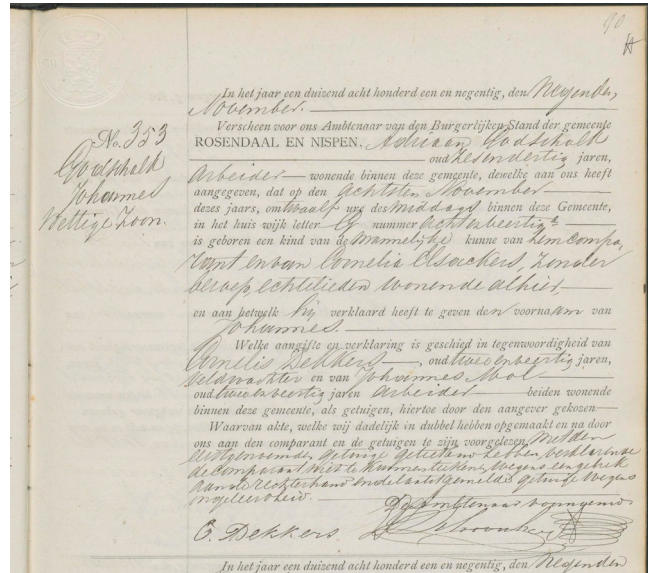 90
In het jaar een duizend acht honderd een en negentig, den Negenden
November.
No. 353
Godschalk
Johannes
Wettige Zoon.
Verscheen voor ons Ambtenaar van den Burgerlijken Stand der gemeente
ROSENDAAL EN NISPEN, Adriaan Godschalk
oud zesendertig jaren,
Arbeider wonende binnen deze gemeente, dewelke aan ons heeft
aangegeven, dat op den achtsten November
dezes jaars, om twaalf ure des middags binnen deze Gemeente,
in het huis wijk letter nummer achtenveertig a
is geboren een kind van de Mannelijke kunne van hem compa,
rant en van Cornelia Elsackers, zonder
beroep, echtelieden wonende alhier,
en aan hetwelk hij verklaard heeft te geven den voornaam van
Johannes.
Welke aangifte en verklaring is geschied in tegenwoordigheid van
Cornelis Dekkers, oud tweeenveertig jaren,
Veldwachter en van Johannes Mol
oud tweeenveertig jaren Arbeider beiden wonende
binnen deze gemeente, als getuigen, hiertoe door den aangever gekozen
Waarvan akte, welke wij dadelijk in dubbel hebben opgemaakt en na door
ons aan den comparant en de getuigen te zijn voorgelezen, met den
eerstgenoemden getuige geteekend hebben, verklarende
de comparant niet te kunnen teekenen wegens een gebrek
aan de rechterhand en de laatstgemelde getuige wegens
ongeleerdheid.
De Ambtenaar voornoemd
C. Dekkers
In het jaar een duizend acht honderd een en negentig, den Negenden